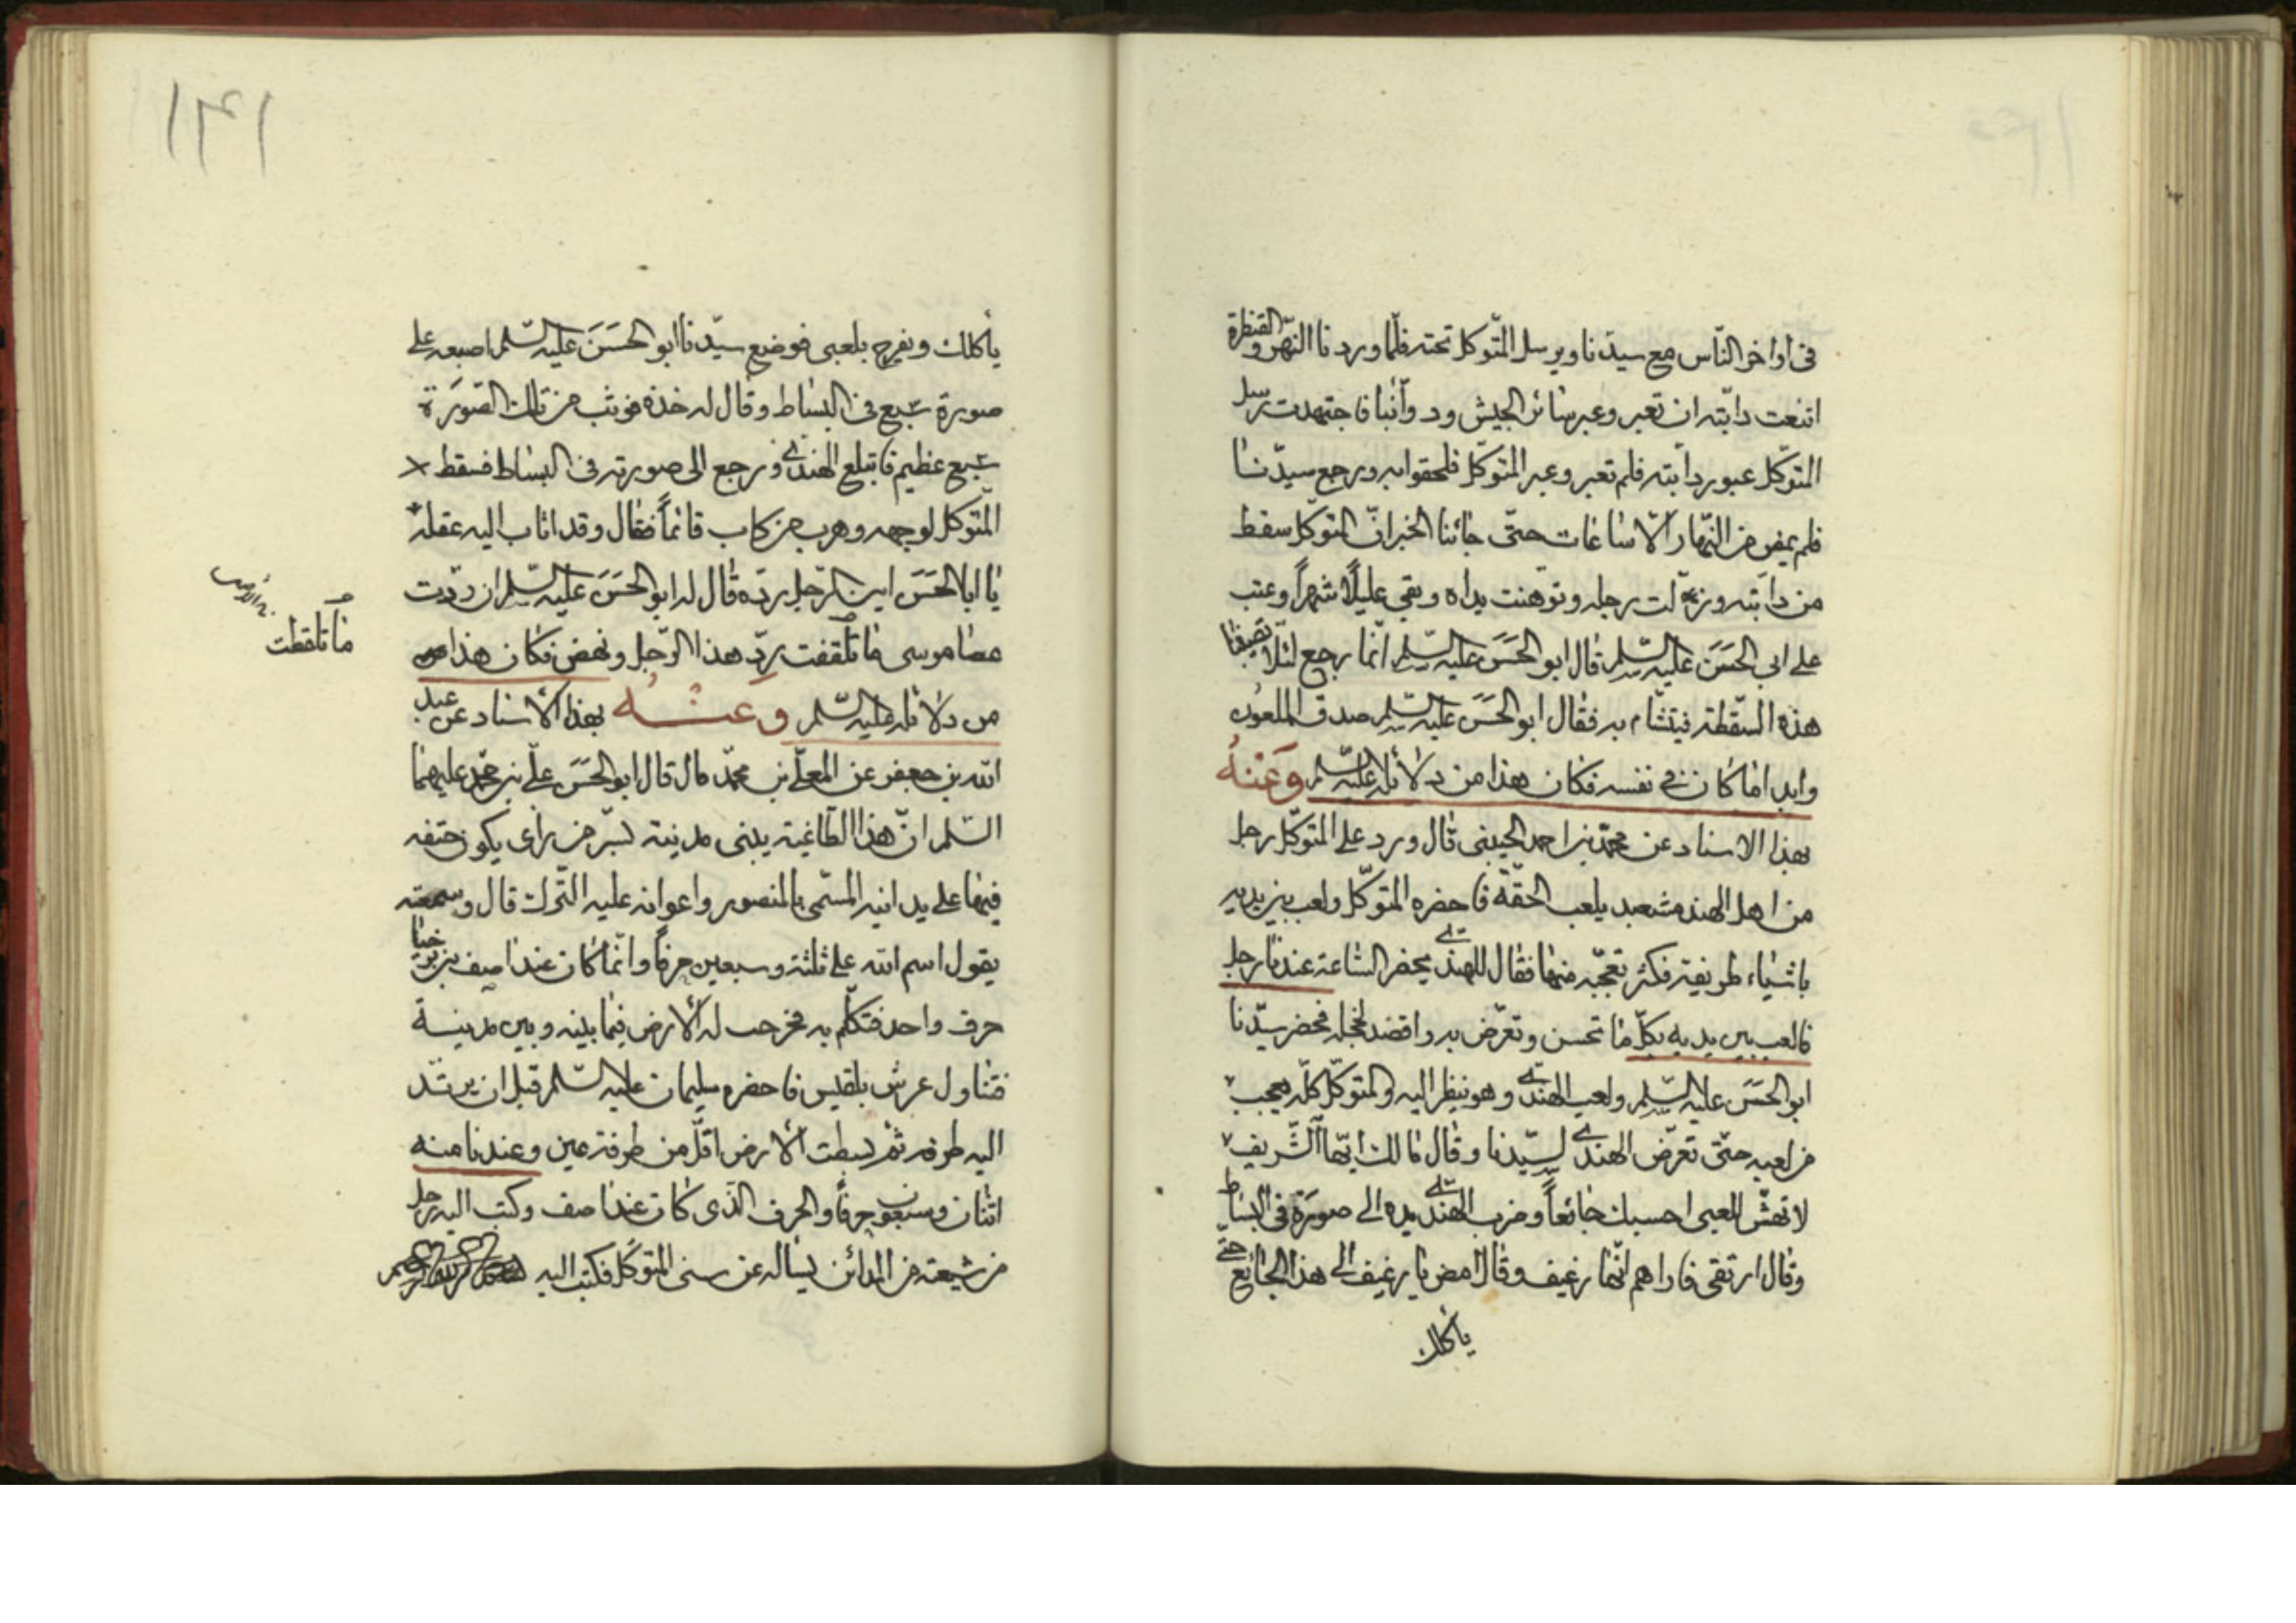 في اواخر النّاس مع سيدّنا ويرسل المتّوكل تحته فلمّا وردنا النّهر و القنطرة
اتنعت دابّته ان تعبر وعبر سائر الجيش ود وآبنا فاجتهدت رسل
المتوكّل عبور دابّته فلم تعبر وعبر المتوكّل فلحقوا به ورجع سيدّنا
فلم يمض من النّهار الّا ساعات حتّى جائنا الخبر انّ المتوكّل سقط
من دابّته وزلت رجله وتوهنت يداه وبقي عليلًا شهراً وعتب
على ابي الحَسَن عليه السّلم قال ابو الحَسَن عليه السّلم انّما رجع لئلّا تصيبنا
هذه السّقطة فيتشّام به فقال ابو الحَسَن عليه السّلم صدق الملعون
وابدا ما كان في نفسه فكان هذا من دلائله عليه السّلم وَعَنْهُ
بهذا الاسناد عن محمّد بن احمد الحيبنى قال ورد على المتوكّل رجل
من اهل الهند مشعبد يلعب الحقّة فاحضره المتوكّل ولعب بين يديه
باشياء طريفة فكثر تعجّبه منها فقال للهندي يحضر السّاعة عندنا رجل
فالعب بين يديه بكلّ ما تحسن وتعرّض به واقصد لخجله فحضر سيّدنا
ابو الحَسَن عليه السّلم ولعب الهندي وهو ينظر اليه والمتوكّل كلّه يعجب
من لعبه حتّى تعرّض الهندي لسيّدنا وقال مالك ايّها الشّريف
لا تهشّ للعبى احسبك جائعاً وضرب الهندي يده الى صورَة في البساط
وقال ارتقى فاراهم انّها رغيف وقال امض يا رغيف الى هذا الجائع حتّى
يأكلك
١٣١
يأكلك ويفرح بلعبى فوضع سيّدنا ابو الحَسَنَ عليه السّلم اصبعه على
صورة سبع في البساط وقال له خذه فوثب من تلك الصّورَة
سبع عظيم فابتلع الهندي ورجع الى صورته في البساط فسقط
المتّوكل لوجهه وهرب من كاب قائماً فقال وقد اثاب اليه عقله
يا ابا الحَسَن اين الرّجل ردّه قال له ابو الحَسَنَ عليه السّلم ان ردّت
عصا موسى ما تلقفت ردّ هذا الرّجل ونهض فكان هذا
ما تلقطت
من دلائله عليه السّلم وعنْهُ بهذا الأسناد عن عبد
الله بن جعفر عن المعلّى بن محمّد قال قال ابو الحَسَن علّي بن محمّد عليهما
السّلم انّ هذا الطّاغية يبنى مدينة بسّر من رأى يكون حتفه
فيها على يد ابنه المسّمى بالمنصور واعوانه عليه التّرك قال وسمعته
يقول اسم الله على ثلثة وسبعين حرفاً وانّما كان عند اصف بن برخيا
حرف واحد فتكلّم به فخرجت له الأرض فيما بينه وبين مدينة
فتناول عرش بلقيس فاحضره سليمان عليه السّلم قبل ان يرتّد
اليه طرفه ثمّ بسطت الأرض اقلّ من طرفة عين وعندنا منه
اثنان وسبعون حرفاً والحرف الذّى كان عند اصف وكتب اليه رجل
من شيعته من المدائن يساله عن سنى المتوكّل فكتب اليه بسم الله الرحمن الرحيم